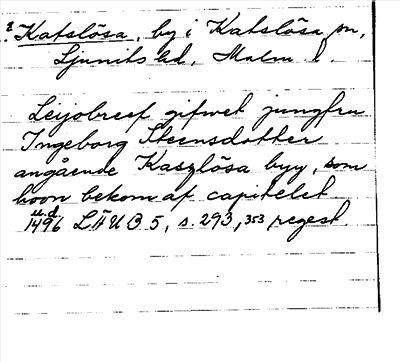 2. Katslösa, by i Katslösa sn,
Ljunits hd, Malm. l.
Leijobreef gifwet jungfru
Ingeborg Steensdotter
angående Kaszlösa byy, som
hoon bekom af capitelet
u.d.
1496 LÄUB 5, s. 293, 353 regest.